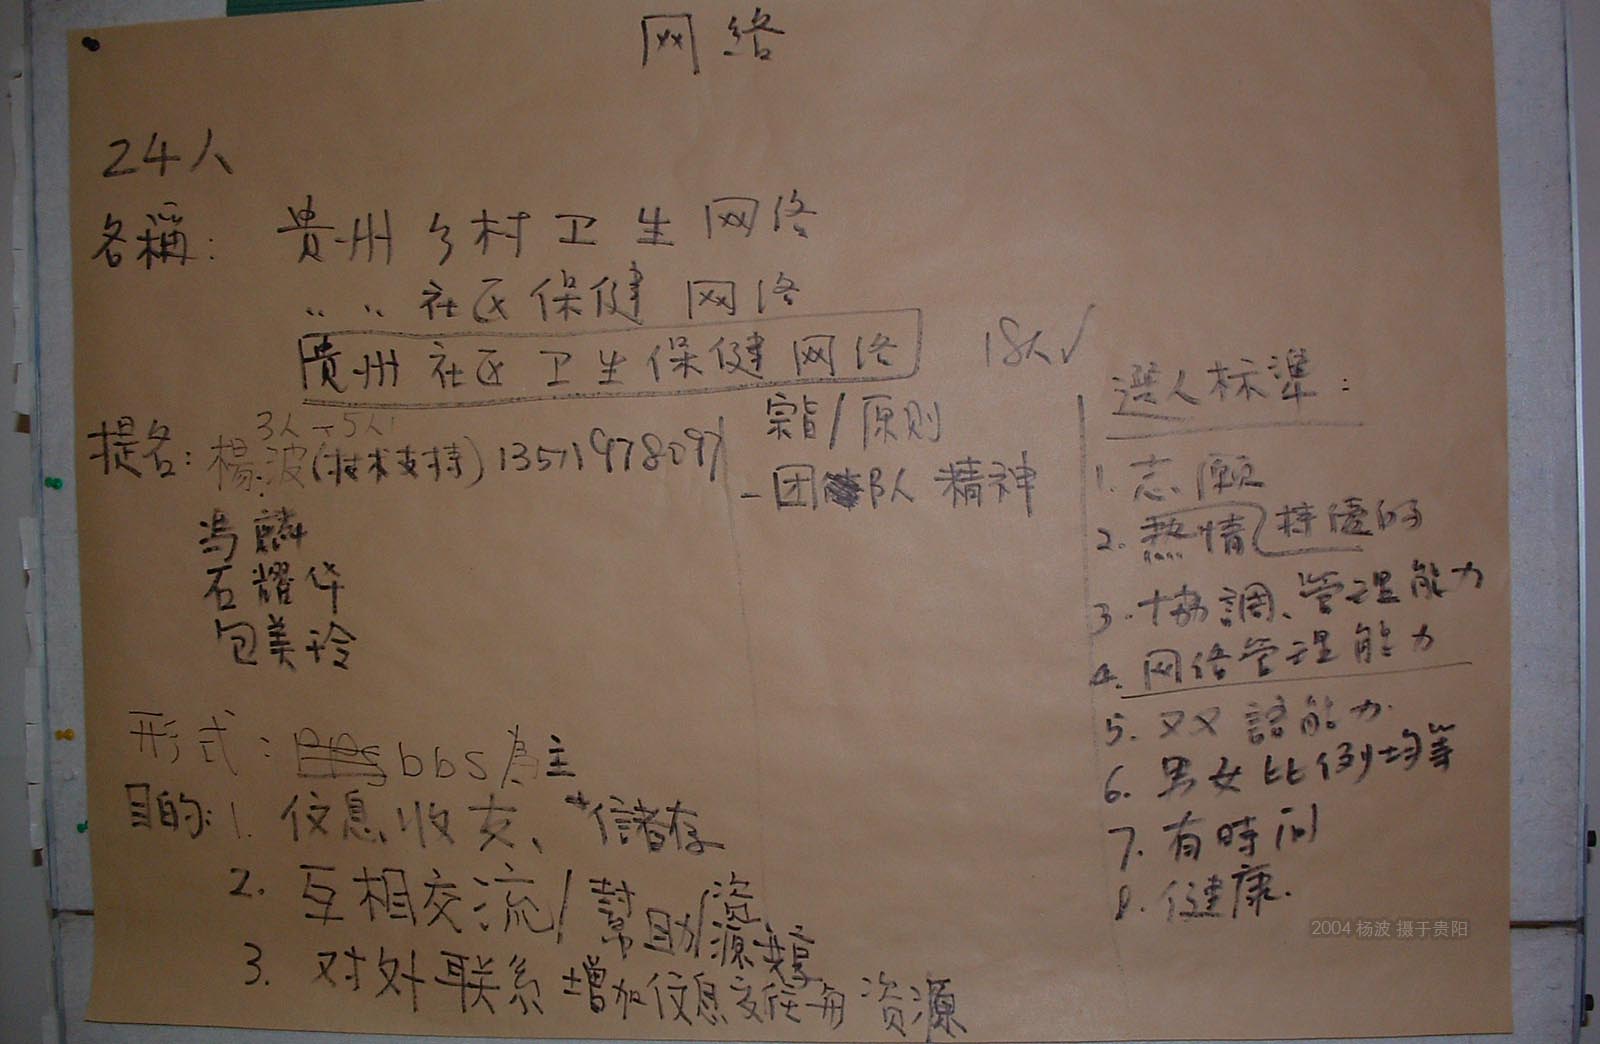 网络
24人
名稱: 贵州乡村卫生网络
〃 〃 社区保健网络
贵州社区卫生保健网络 18人√
提名: 3人-5人
楊波(技术支持)
冯麟
石耀华
包美玲
形式: bbs为主
目的: 1. 信息收支、+儲存
2. 互相交流/幫助/资源共享
3. 对外联系 增加信息 资源
宗旨/原则
-团队精神
選人标準:
1. 志愿
2. 热情 持優的
3. 協調、管理能力
4. 网络管理能力
5. 双語能力
6. 男女比例均等
7. 有時间
8. 健康.
2004 杨波 摄于贵阳